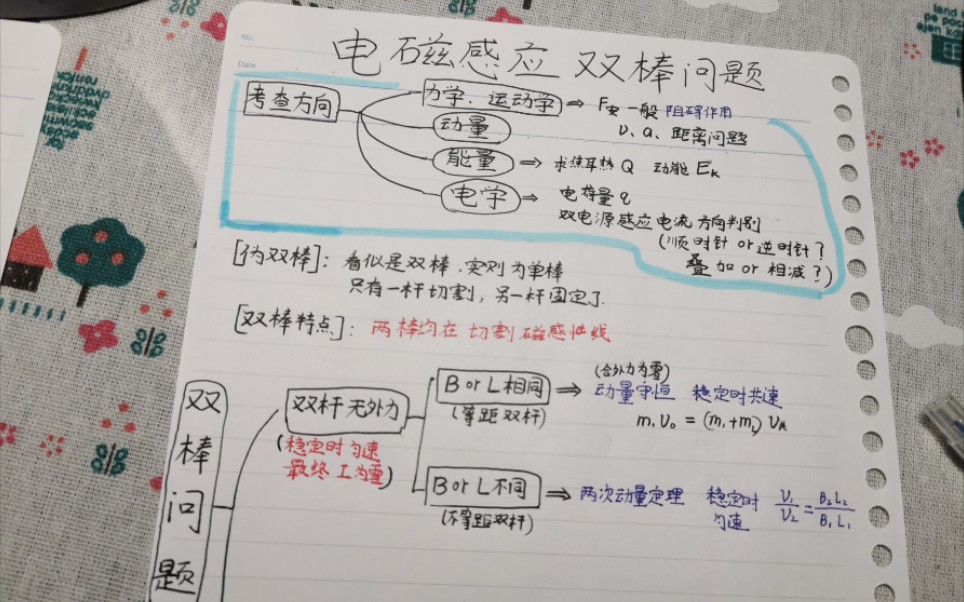 No.
Date
电磁感应 双棒问题
考查方向
力学、运动学 ⇒ F安 一般 阻碍作用
v、a、距离问题
动量
能量 ⇒ 求焦耳热 Q 动能 Ek
电学 ⇒ 电荷量 q
双电源感应电流方向判别
(顺时针 or 逆时针?
叠加 or 相减?)
[伪双棒]: 看似是双棒,实则为单棒
只有一杆切割,另一杆固定了.
[双棒特点]: 两棒均在切割磁感性线
双棒问题
双杆无外力
(稳定时匀速
最终 I 为零)
B or L 相同
(等距双杆)
⇒ (合外力为零)
动量守恒 稳定时共速
m₁v₀ = (m₁+m₂)v共
B or L 不同
(不等距双杆)
⇒ 两次动量定理 稳定时匀速 v₁/v₂ = B₂L₂/B₁L₁